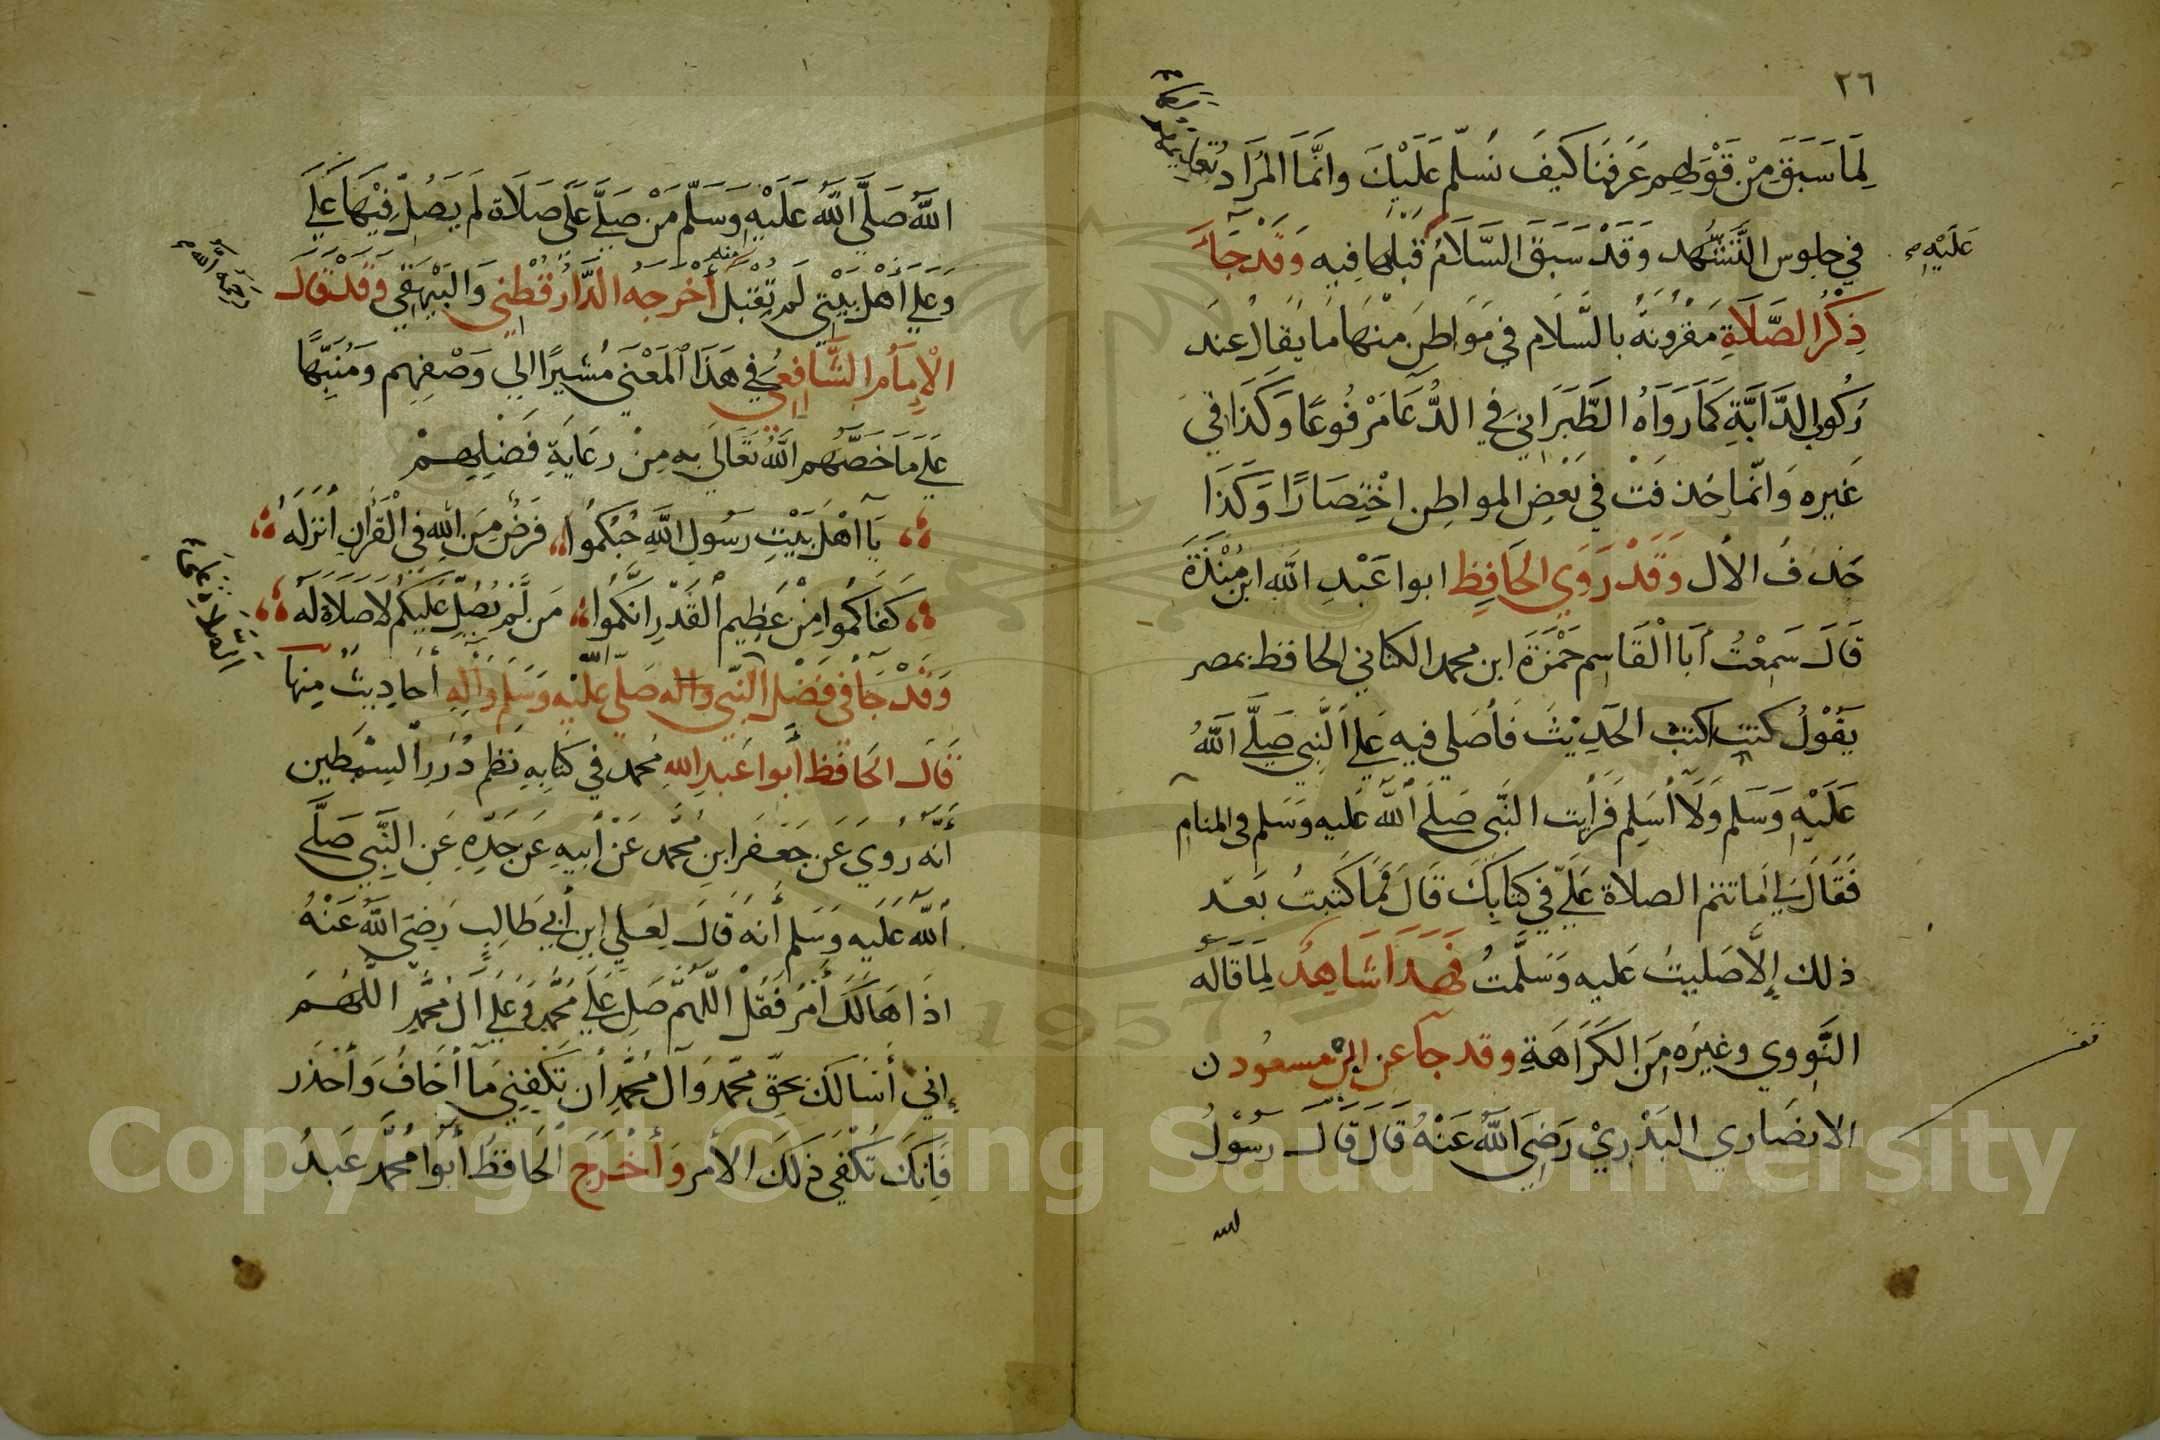 ٢٦
لِمَا سَبَقَ مِنْ قَوْلِهِم عَرَفْنَا كَيفَ نُسَلّم عَلَيْكَ وانَّمَا المُرَاد
في جلوس التَّشَهُّد وَقَدْ سَبَقَ السَّلَامُ قَبْلَها فيه وَقَدْ جَآءَ
عَلَيْهِ
ذِكْرُ الصَّلَاةِ مَقْرُونَةً بالسَّلَام في مَوَاطِنَ مِنْهَا مَا يُقَالُ عِندَ
رُكُوبِ الدَّابَّةِ كَمَا رَوَاهُ الطَّبَرَاني في الدُّعَا مَرْفُوعًا وَكَذَا في
غَيرِه وَانّمَا حُذِفَتْ في بَعْضِ المواطِنِ اخْتِصَارًا وَكَذَا
حَذفُ الأل وَقَدْ رَوَي الحَافِظ ابوا عَبْدِ الله ابن مِنْدَةَ
قَالَ سَمِعْتُ أَبَا الْقَاسِم حَمْزَةَ ابن محمد الكناني الحافظ بمصر
يَقُوْلُ كنت اكتب الحَدِيْثَ فَأُصَلي فيه عَلَي النَّبِي صَلَّي اللهُ
عَلَيْهِ وَسَلم وَلَا أُسَلِم فَرَأيت النَّبي صَلَي اللهُ عَلَيه وَسَلم في المنام
فَقَالَ لي أمَا تتم الصلاة عَلَيَّ في كتابِكَ قَالَ فَمَا كَتَبتُ بَعد
ذلك إلَّا صَليتُ عَليه وَسَلَّمتُ فَهَذَا شَاهِدُ لِمَا قَالَه
النَّوَوي وغَيرُه مِنَ الكَرَاهَةِ وقد جآ عن ابْن مسعُود ن
الانصَاري البَدْرِيْ رَضِيَ اللهُ عَنْهُ قَالَ قَالَ رسُوْلُ
لله
اللهِ صَلَّي اللهُ عَلَيْهِ وَسَلّم مَنْ صَلَّي عَلَي صَلَاة لَم يُصَلِّ فِيْهَا عَلَيَّ
وَعَلَي أَهْل بَيْتِي لَم تُقْبَل أَخْرَجَه الدَّارُقُطْنِي وَالبَيْهَقي وَقَدْ قَالَ
منه
رحمه الله
الْإمَامُ الشَّافِعيُّ في هَذَا المَعْنَي مُشيرًا الي وَصْفِهِم وَمُنَبِّهًا
عَلَي مَا خَصَّهُم اللهُ تَعَالَي بِهِ مِنْ رِعَايَةِ فَضْلِهِمْ
يَآ اهْلَ بَيْتِ رسُولِ اللهِ حُبُّكمُوا فَرضٌ مِنَ اللهِ في الْقُرآنِ أنزَلَهُ
كَفَاكمُوا مِنْ عَظِيم الْقَدْرِ انَّكمُوا مَن لَّم يُصَلّ عَلَيكم لَا صَلَاةَ لَهُ
وَقَدْ جَآ في فَضْل النَّبي وَآله صَلّي الله عَليْه وَسَلم وَآلِهِ أحَادِيثُ مِنها
قَالَ الحَافظ أبوا عَبدِ اللهِ مُحمد في كتَابِهِ نَظم دُرَرِ السِّمْطَين
أنَّه رُوي عَن جَعْفَر ابنِ مُحَّمد عَنْ أبيهِ عَن جَدِّهِ عَنِ النَّبِي صَلَّي
اللهُ عَلَيه وَسَلم أنّه قَالَ لِعَلي ابن أبي طَالِبٍ رَضيَ اللهُ عَنْهُ
اذَا هَالَكَ أَمْرٌ فَقُل اللّهمَّ صَلِّ عَلَي مُحَّمدٍ وَعَلَي آلِ مُحَمَّدٍ اللّهُمَّ
إني أسَالَكَ بحَقِّ محمّد وَآل مُحَمَّدٍ أن تَكْفِيَني مَآ أخَافُ وَأحْذَر
فَإنكَ تُكْفَي ذَلَكَ الأمر وَأخْرَجَ الحَافظُ أبُوا مُحَّمد عَبدُ